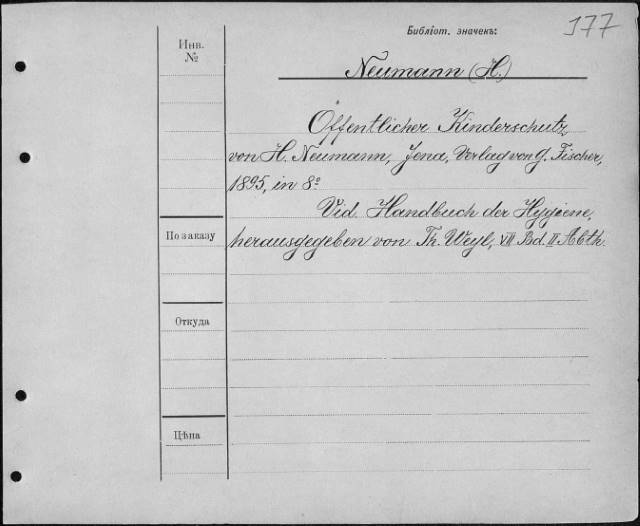 Библіот. значекъ:
177
Инв.
№
Neumann (H.)
Öffentlicher Kinderschutz,
von H. Neumann, Jena, Verlag von G. Fischer,
1895, in 8°
Vid. Handbuch der Hygiene,
По заказу
herausgegeben von Th. Weyl, VII Bd. II Abth.
Откуда
Цѣна